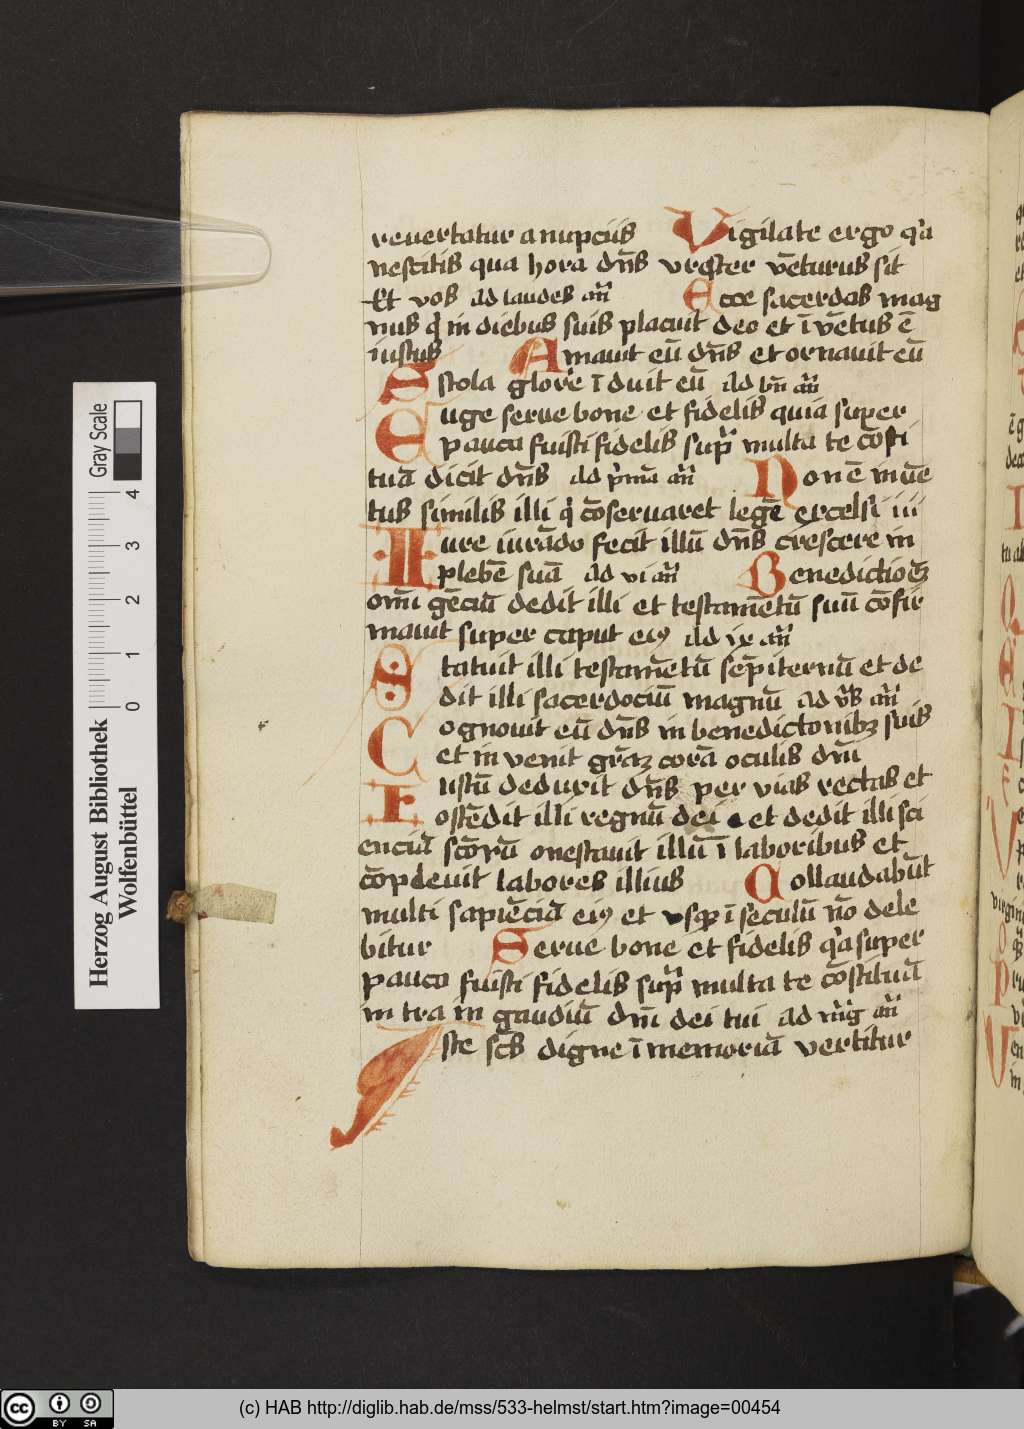 reuertatur a nupciis Vigilate ergo q'a
nescitis qua hora dn̄s vester vēturus sit
Et vos ad laudes an̄
Ecce sacerdos mag
nus q' in diebus suis placuit deo et ī vētus ē
iustus Amauit eū dn̄s et ornauit eū
Stola glor'e īduit eū ad bn̄ an̄
Euge serue bone et fidelis quia super
pauca fuisti fidelis sup' multa te cōsti
tuā dicit dn̄s ad p'mā an̄ Non ē inuē
tus similis illi q' cōseruaret legē excelsi iii
Iure iurādo fecit illū dn̄s crescere in
plebē suā ad vi an̄ Benedictioēz
om̄i gēciū dedit illi et testamētū suū cōfir
mauit super caput ei9 ad ix an̄
Statuit illi testamētū sēpiternū et de
dit illi sacerdociū magnū ad v's an̄
Cognouit eū dn̄s in benedictonibz suis
et in venit gr̄az corā oculis dn̄i
Iustū deduxit dn̄s per vias rectas et
ostēdit illi regnū dei et dedit illi sci
enciā sc̄orū onestauit illū ī laboribus et
cōpleuit labores illius Collaudabūt
multi sapiēciā ei9 et vsq3 ī seculū nō dele
bitur Serue bone et fidelis q'a super
pauca fuisti fidelis sup' multa te cōstituā
in tra in gaudiū dn̄i dei tui ad mg̅ an̄
Iste sc̄s digne ī memoriā vertitur
Gray Scale
0 1 2 3 4
Herzog August Bibliothek
Wolfenbüttel
(c) HAB http://diglib.hab.de/mss/533-helmst/start.htm?image=00454
cc BY SA